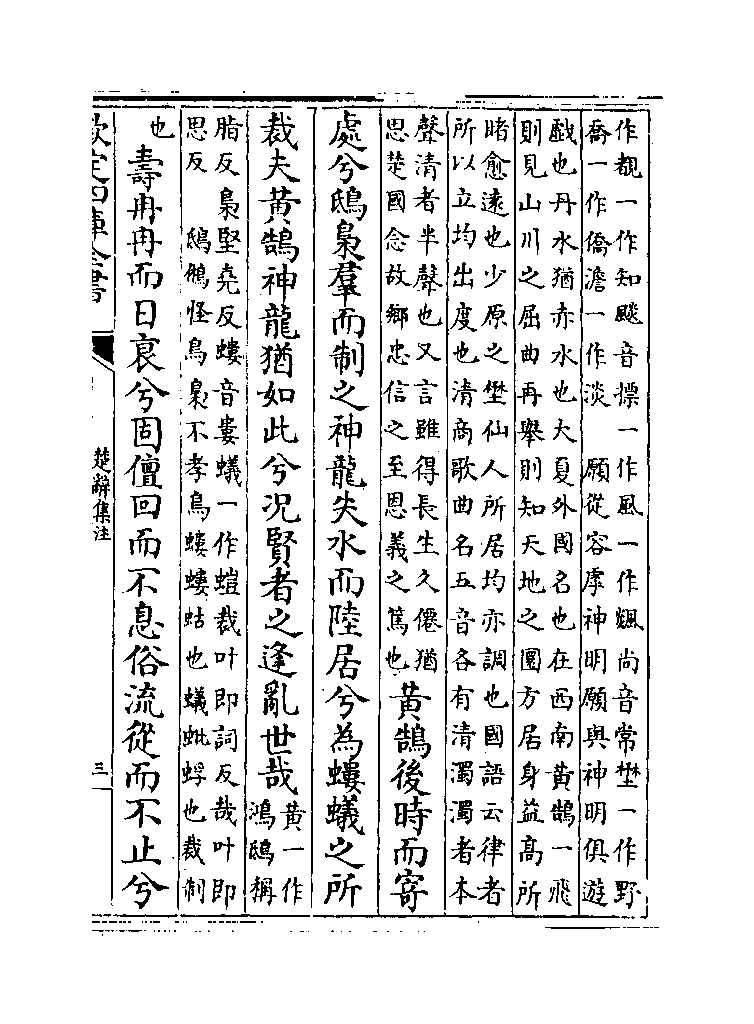 作覩一作知飈音摽一作風一作颻尚音常壄一作野
喬一作僑澹一作淡　願從容虖神明願與神明俱遊
戯也丹水猶赤水也大夏外國名也在西南黄鵠一飛
則見山川之屈曲再舉則知天地之圜方居身益髙所
睹愈逺也少原之壄仙人所居均亦調也國語云律者
所以立均出度也清商歌曲名五音各有清濁濁者本
聲清者半聲也又言雖得長生久僊猶
思楚國念故鄉忠信之至恩義之篤也
黄鵠後時而寄
處兮鴟梟羣而制之神龍失水而陸居兮為螻蟻之所
裁夫黄鵠神龍猶如此兮况賢者之逢亂世哉
黄一作
鴻鴟稱
脂反梟堅堯反螻音婁蟻一作螘裁叶即詞反哉叶即
思反　鴟鵂怪鳥梟不孝鳥螻螻蛄也蟻蚍蜉也裁制
也
壽冉冉而日衰兮固儃回而不息俗流從而不止兮
欽定四庫全書
楚辭集注
三